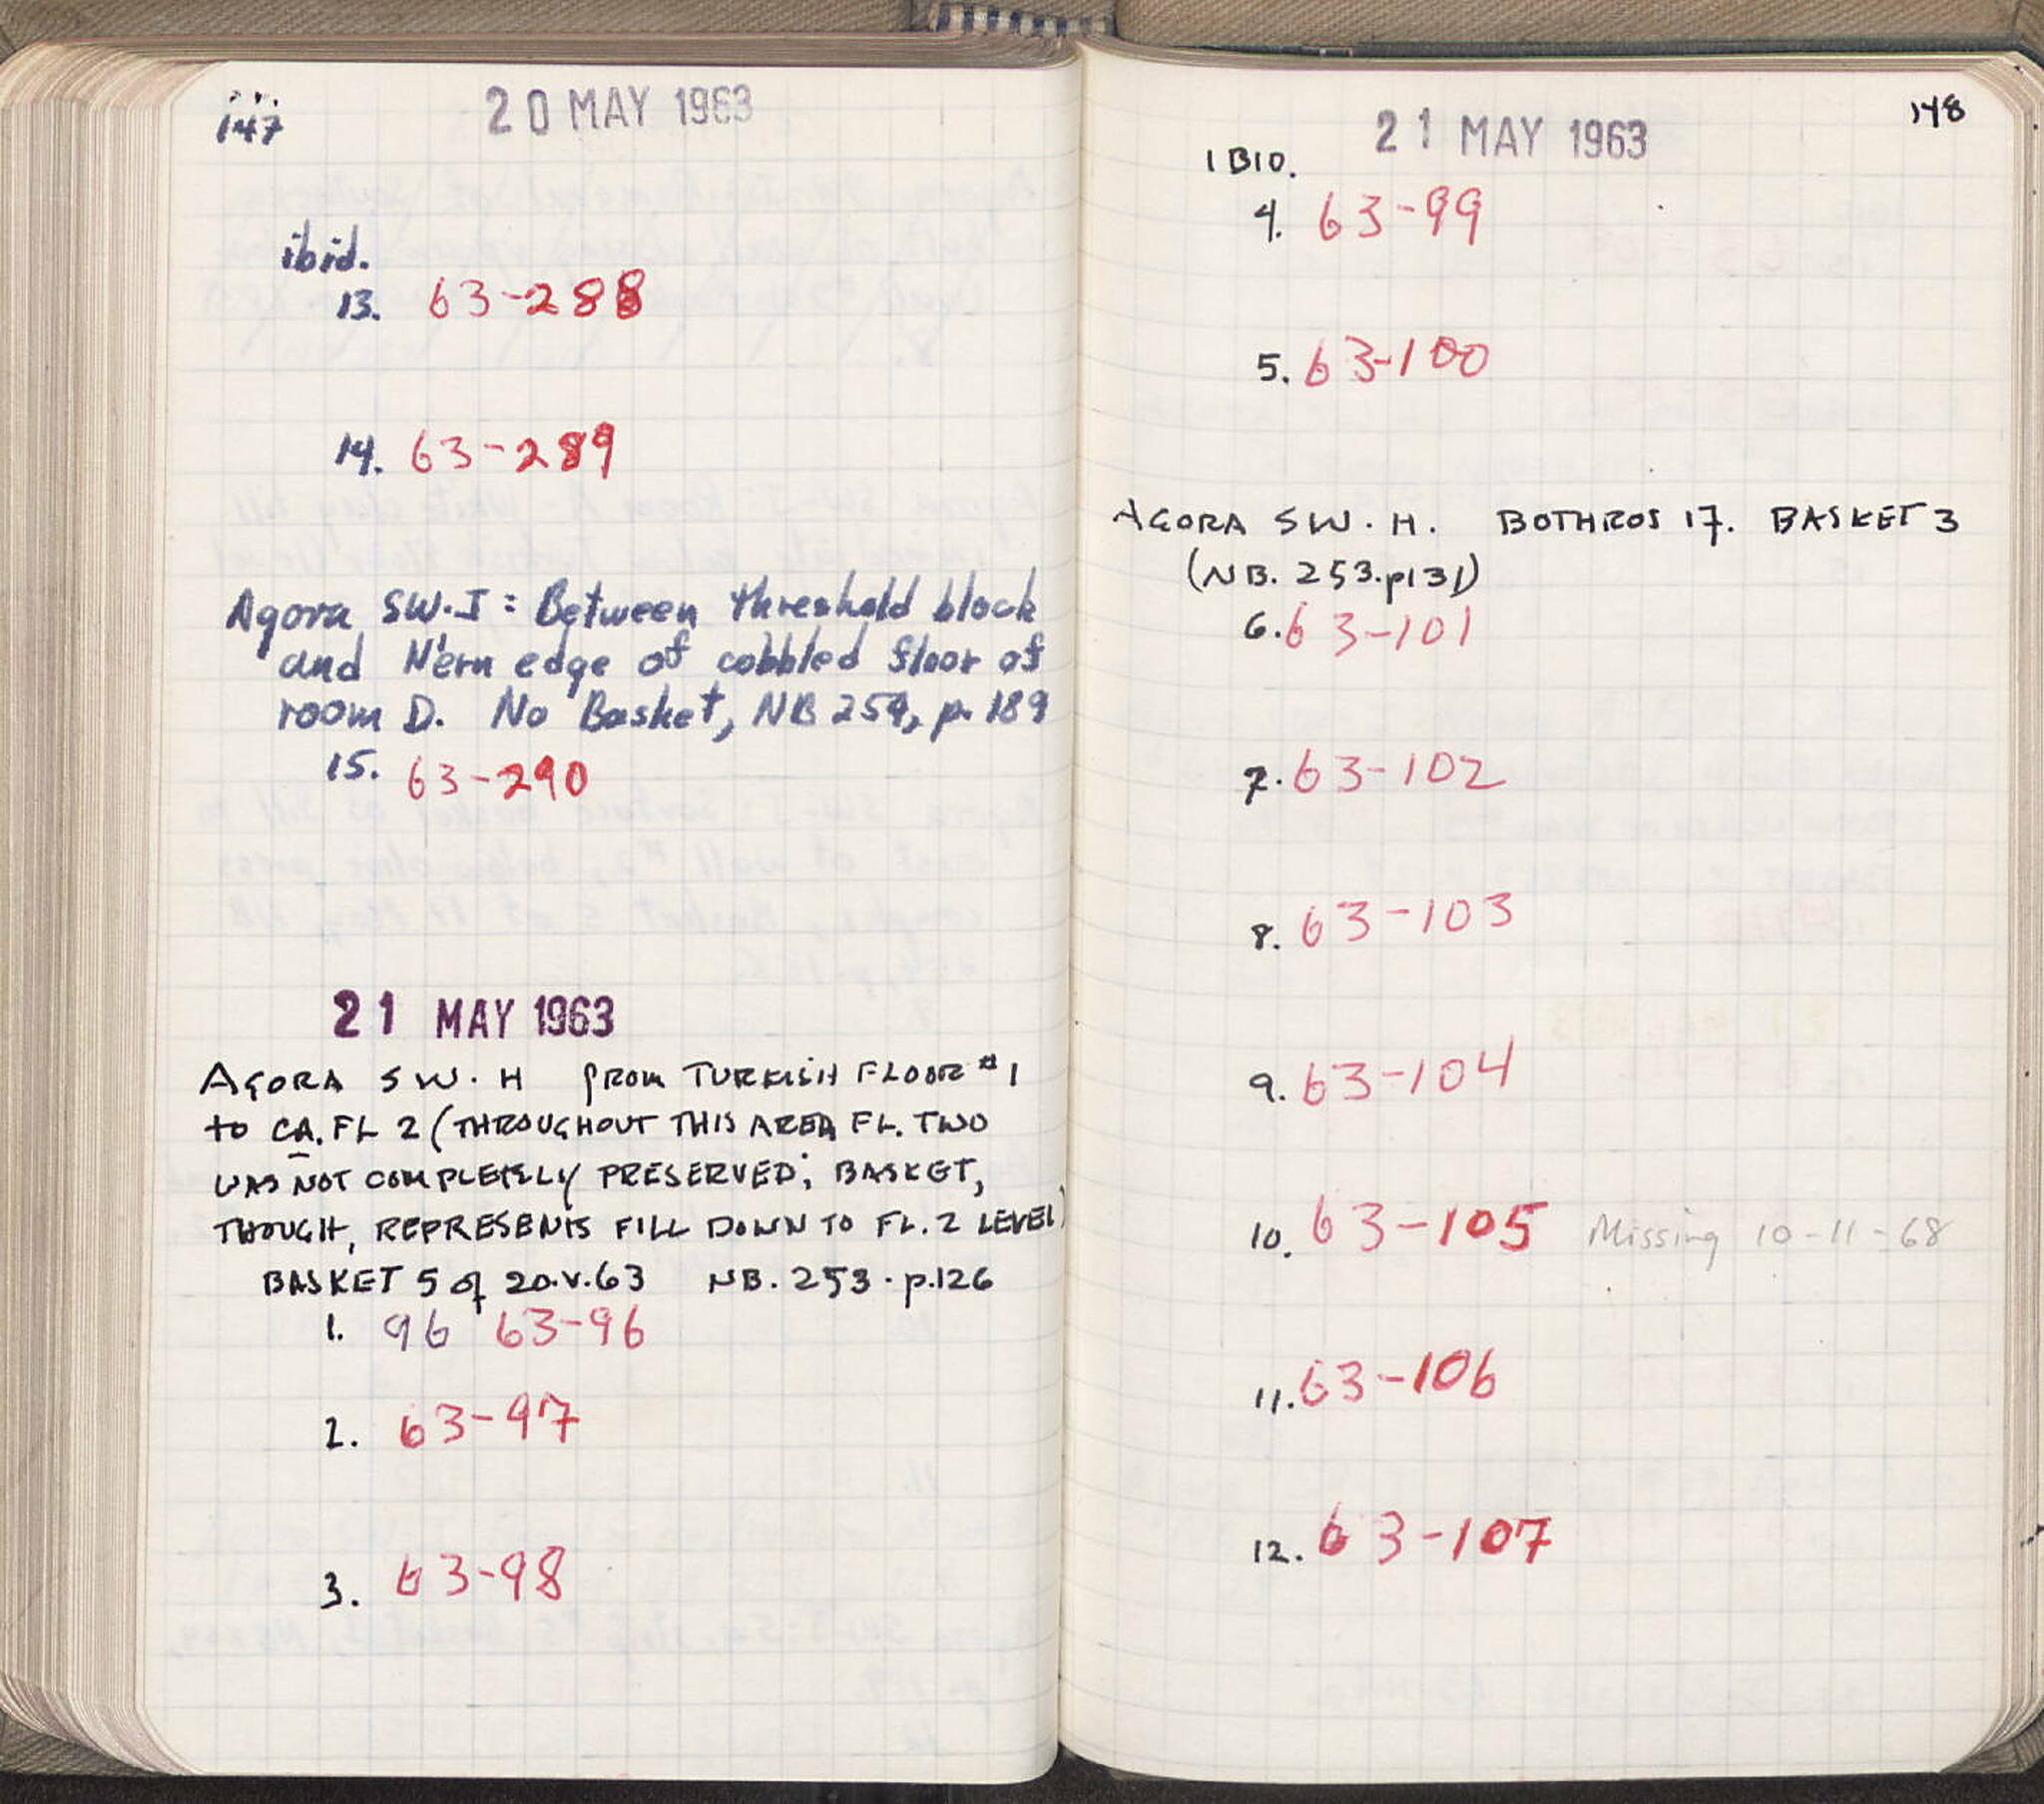 147
20 MAY 1963
ibid.
13. 63-288
14. 63-289
Agora SW.I: Between threshold block
and N'ern edge of cobbled floor of
room D. No Basket, NB 254, p. 189
15. 63-290
21 MAY 1963
AGORA SW. H from TURKISH FLOOR #1
to CA. FL 2 (THROUGHOUT THIS AREA FL. TWO
WAS NOT COMPLETELY PRESERVED; BASKET,
THOUGH, REPRESENTS FILL DOWN TO FL. 2 LEVEL)
BASKET 5 of 20.V.63 NB. 253. p.126
1. 96 63-96
2. 63-97
3. 63-98
148
21 MAY 1963
IBID.
4. 63-99
5. 63-100
AGORA SW. H. BOTHROS 17. BASKET 3
(NB. 253. p131)
6. 63-101
7. 63-102
8. 63-103
9. 63-104
10. 63-105 Missing 10-11-68
11. 63-106
12. 63-107